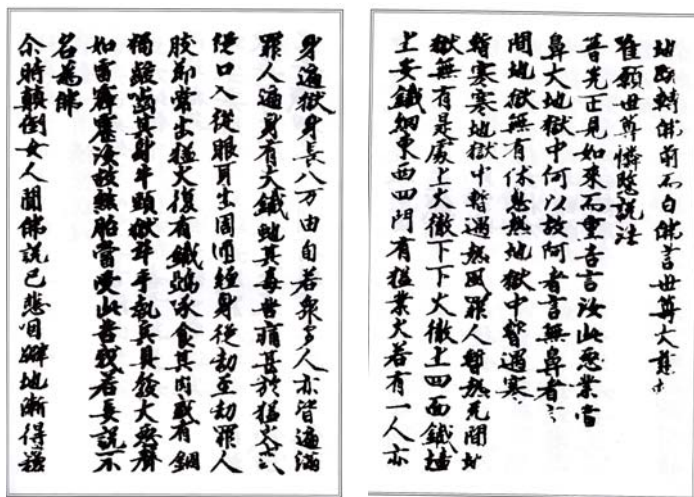 地轉佛前而白佛言世尊大慈
唯願世尊憐愍說法
普光正見如來而重告言汝此惡業當
鼻大地獄中何以故阿者言無鼻者言
間地獄無有休息熱地獄中暫遇寒
暫寒寒地獄中暫遇熱風罪人暫熱无間地
獄無有是處上火徹下下火徹上四面鐵墻
上安鐵網東西四門有猛業火若有一人亦
身遍獄身長八万由旬若衆多人亦皆遍滿
罪人遍身有大鐵虵其毒苦痛甚於猛火或
從口入從眼耳出周迊纏身從劫至劫罪人
肢節常出猛火復有鐵鵶啄食其肉或有銅
狗齩嚙其身牛頭獄卒手執兵具發大惡聲
如雷霹靂汝故煞胎當受此苦我若妄說不
名為佛
尒時顛倒女人聞佛說已悲咽躃地漸得穌